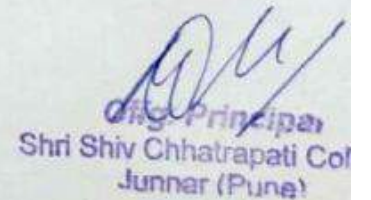 Offg. Principal
Shri Shiv Chhatrapati Col
Junnar (Pune)